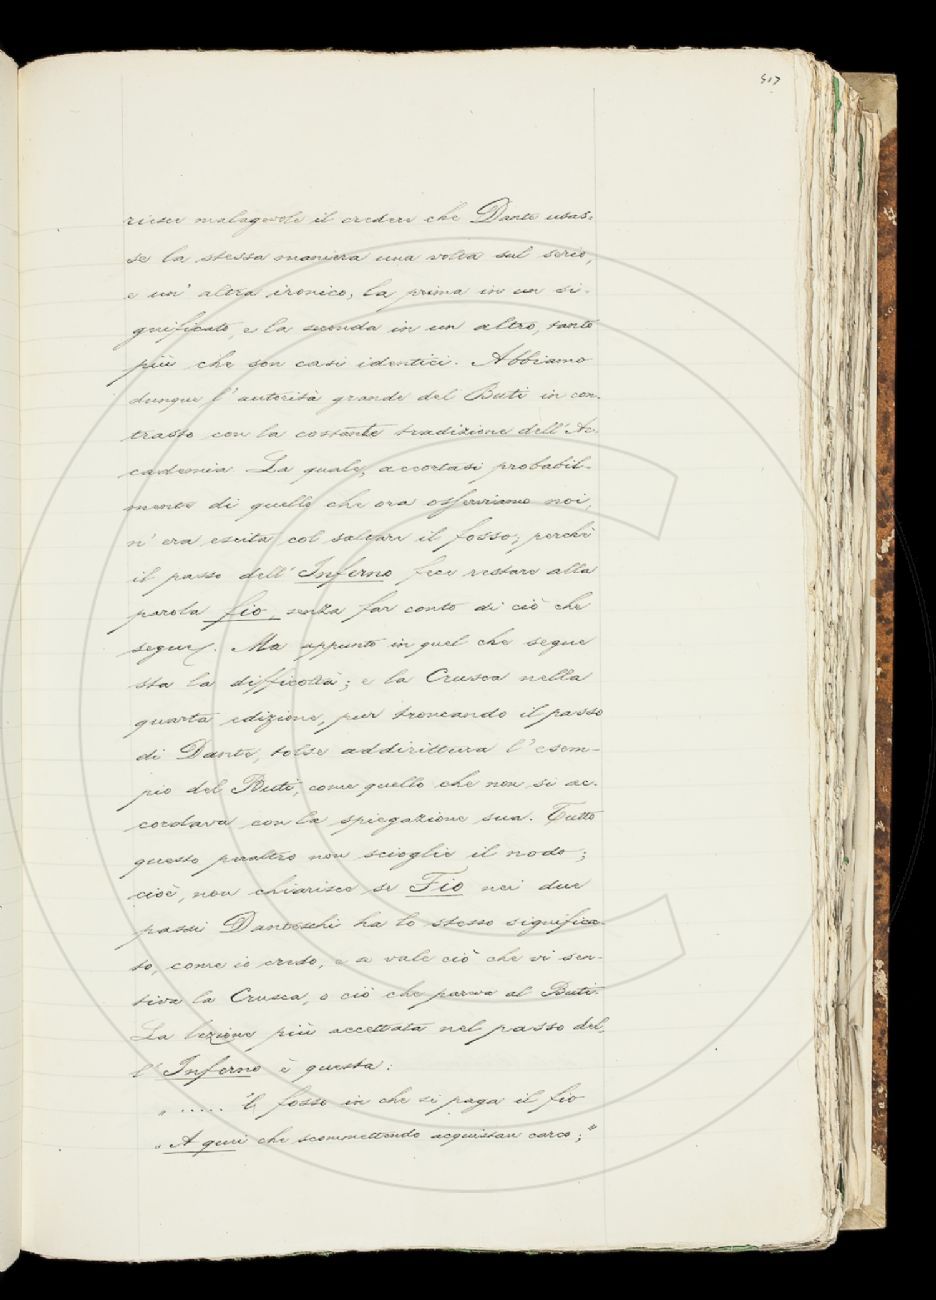 517
riesce malagevole il credere che Dante usas-
se la stessa maniera una volta sul serio,
e un' altra ironico, la prima in un si-
gnificato, e la seconda in un altro, tanto
più che son casi identici. Abbiamo
dunque l'autorità grande del Buti in con-
trasto con la costante tradizione dell'Ac-
cademia. La quale, accortasi probabil-
mente di quello che ora osserviamo noi,
n' era escita col saltare il fosso; perchè
il passo dell' Inferno fece restare alla
parola fio senza far conto di ciò che
segue. Ma appunto in quel che segue
sta la difficoltà; e la Crusca nella
quarta edizione, pur troncando il passo
di Dante, tolse addirittura l' esem-
pio del Buti, come quello che non si ac-
cordava con la spiegazione sua. Tutto
questo peraltro non scioglie il nodo;
cioè, non chiarisce se Fio nei due
passi Danteschi ha lo stesso significa-
to, come io credo, e a vale ciò che vi sen-
tiva la Crusca, o ciò che pareva al Buti.
La lezione più accettata nel passo del-
l' Inferno è questa:
" ..... 'l fosso in che si paga il fio
" A quei che scommettendo acquistan carco; "